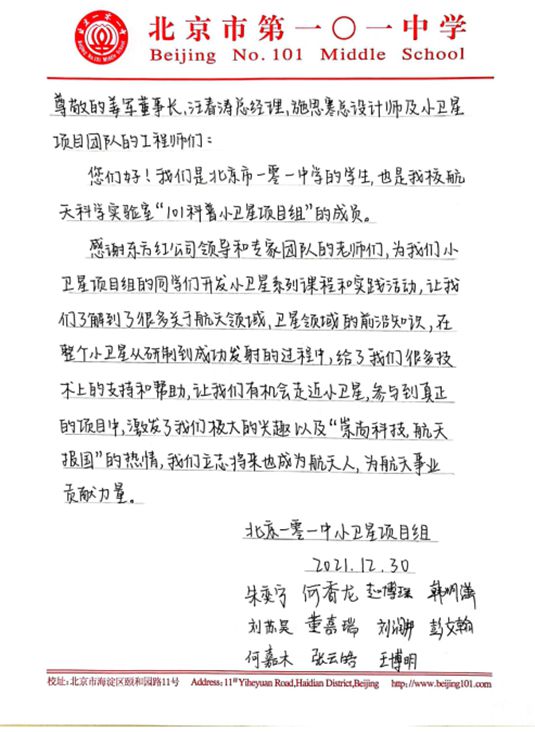 北京市第一〇一中学
Beijing No. 101 Middle School
尊敬的姜军董事长，汪春涛总经理，施思寒总设计师及小卫星
项目团队的工程师们：
您们好！我们是北京市一零一中学的学生，也是我校航
天科学实验室“101科普小卫星项目组”的成员。
感谢东方红公司领导和专家团队的老师们，为我们小
卫星项目组的同学们开发小卫星系列课程和实践活动，让我
们了解到了很多关于航天领域、卫星领域的前沿知识，在
整个小卫星从研制到成功发射的过程中，给了我们很多技
术上的支持和帮助，让我们有机会走近小卫星，参与到真正
的项目中，激发了我们极大的兴趣以及“崇尚科技，航天
报国”的热情，我们立志将来也成为航天人，为航天事业
贡献力量。
北京一零一中小卫星项目组
2021.12.30
朱奕宁 何香龙 赵博琛 韩明潇
刘苏昊 董嘉瑞 彭文翰
何嘉木 张云皓 王博明
校址：北京市海淀区颐和园路11号 Address: 11# Yiheyuan Road, Haidian District, Beijing http://www.beijing101.com